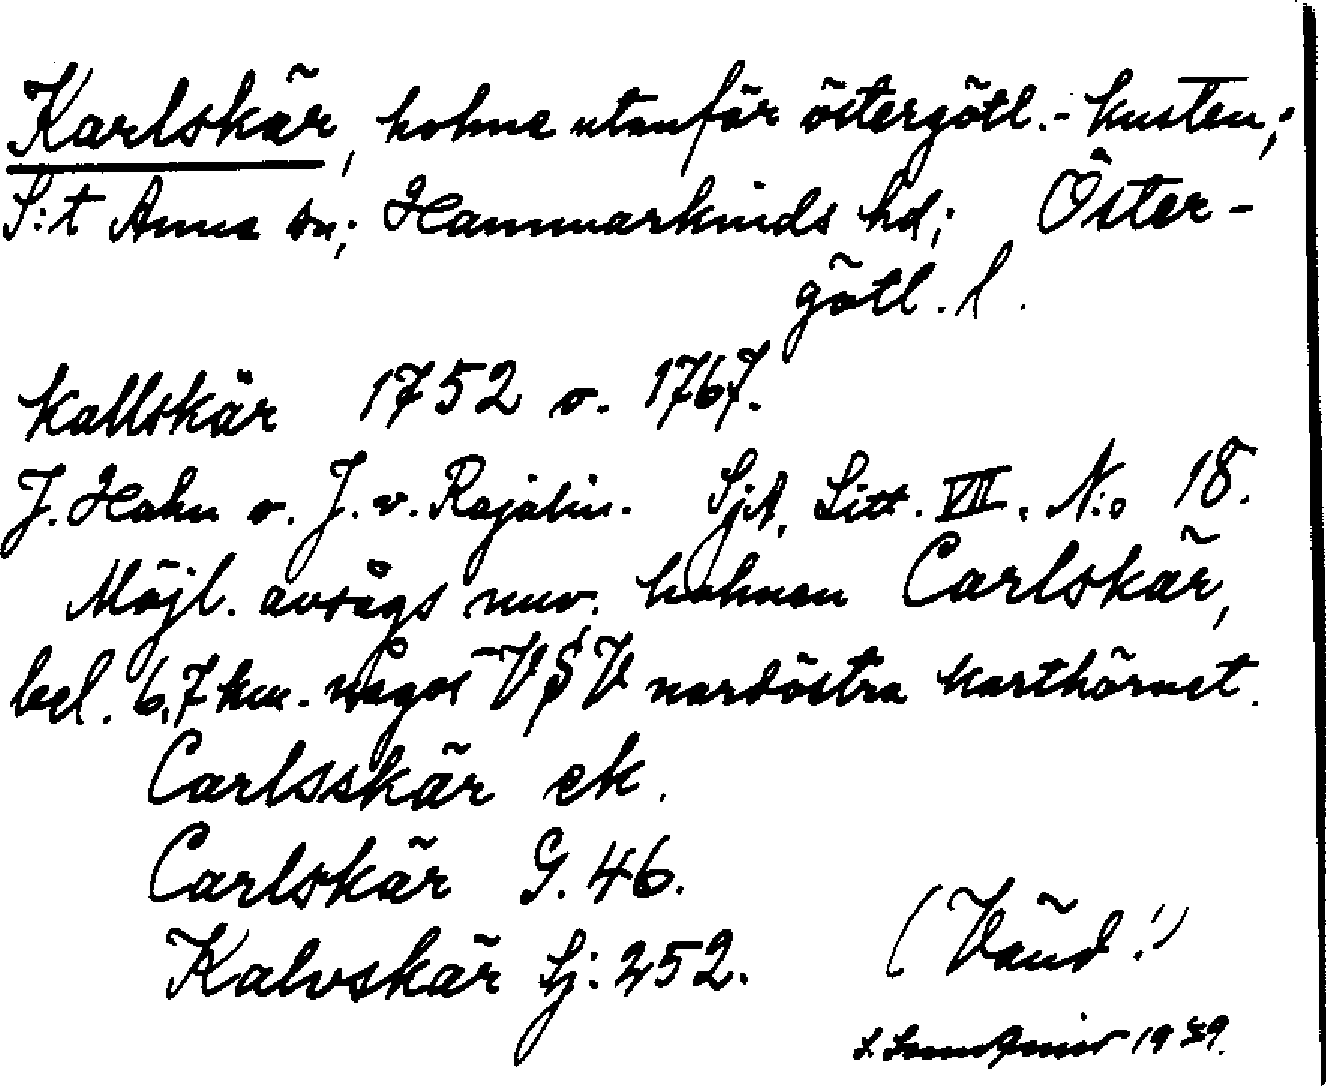 Karlskär, holme utanför östergötl.-kusten;
S:t Anna sn; Hammarkinds hd; Öster-
götl. l.
Kallskär 1752 o. 1767.
J. Hahn o. J. v. Rajalin. SjA. Litt. VII. N:o 18.
Möjl. avsågs nuv. holmen Carlskär,
bel. 6,7 km. något V § V nordöstra karthörnet.
Carlsskär ek.
Carlskär G. 46.
Kalvskär Sj: 252.
(Vänd!)
1949.